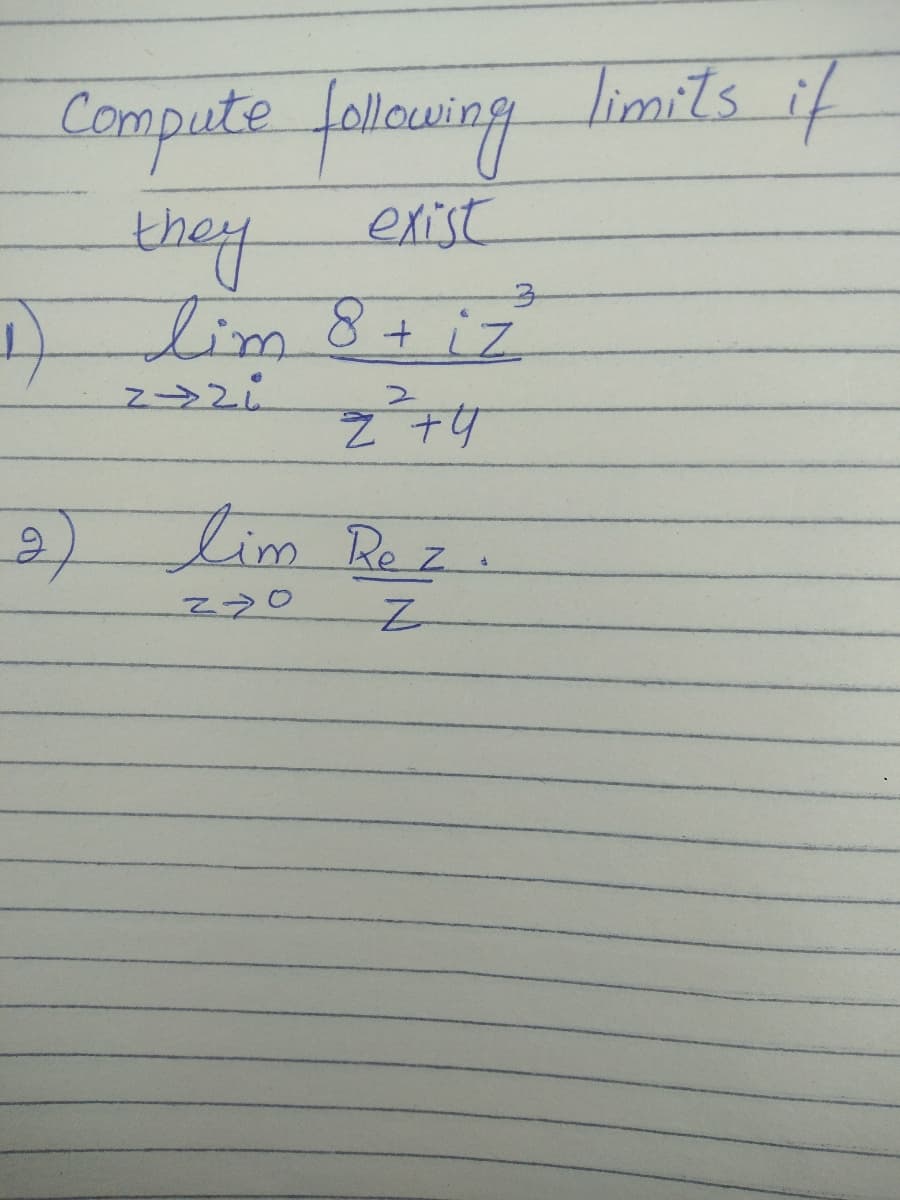 Compute following limits if
they exist
1) lim 8 + iz³
z→2i z²+4
2) lim Re z.
z→0 z